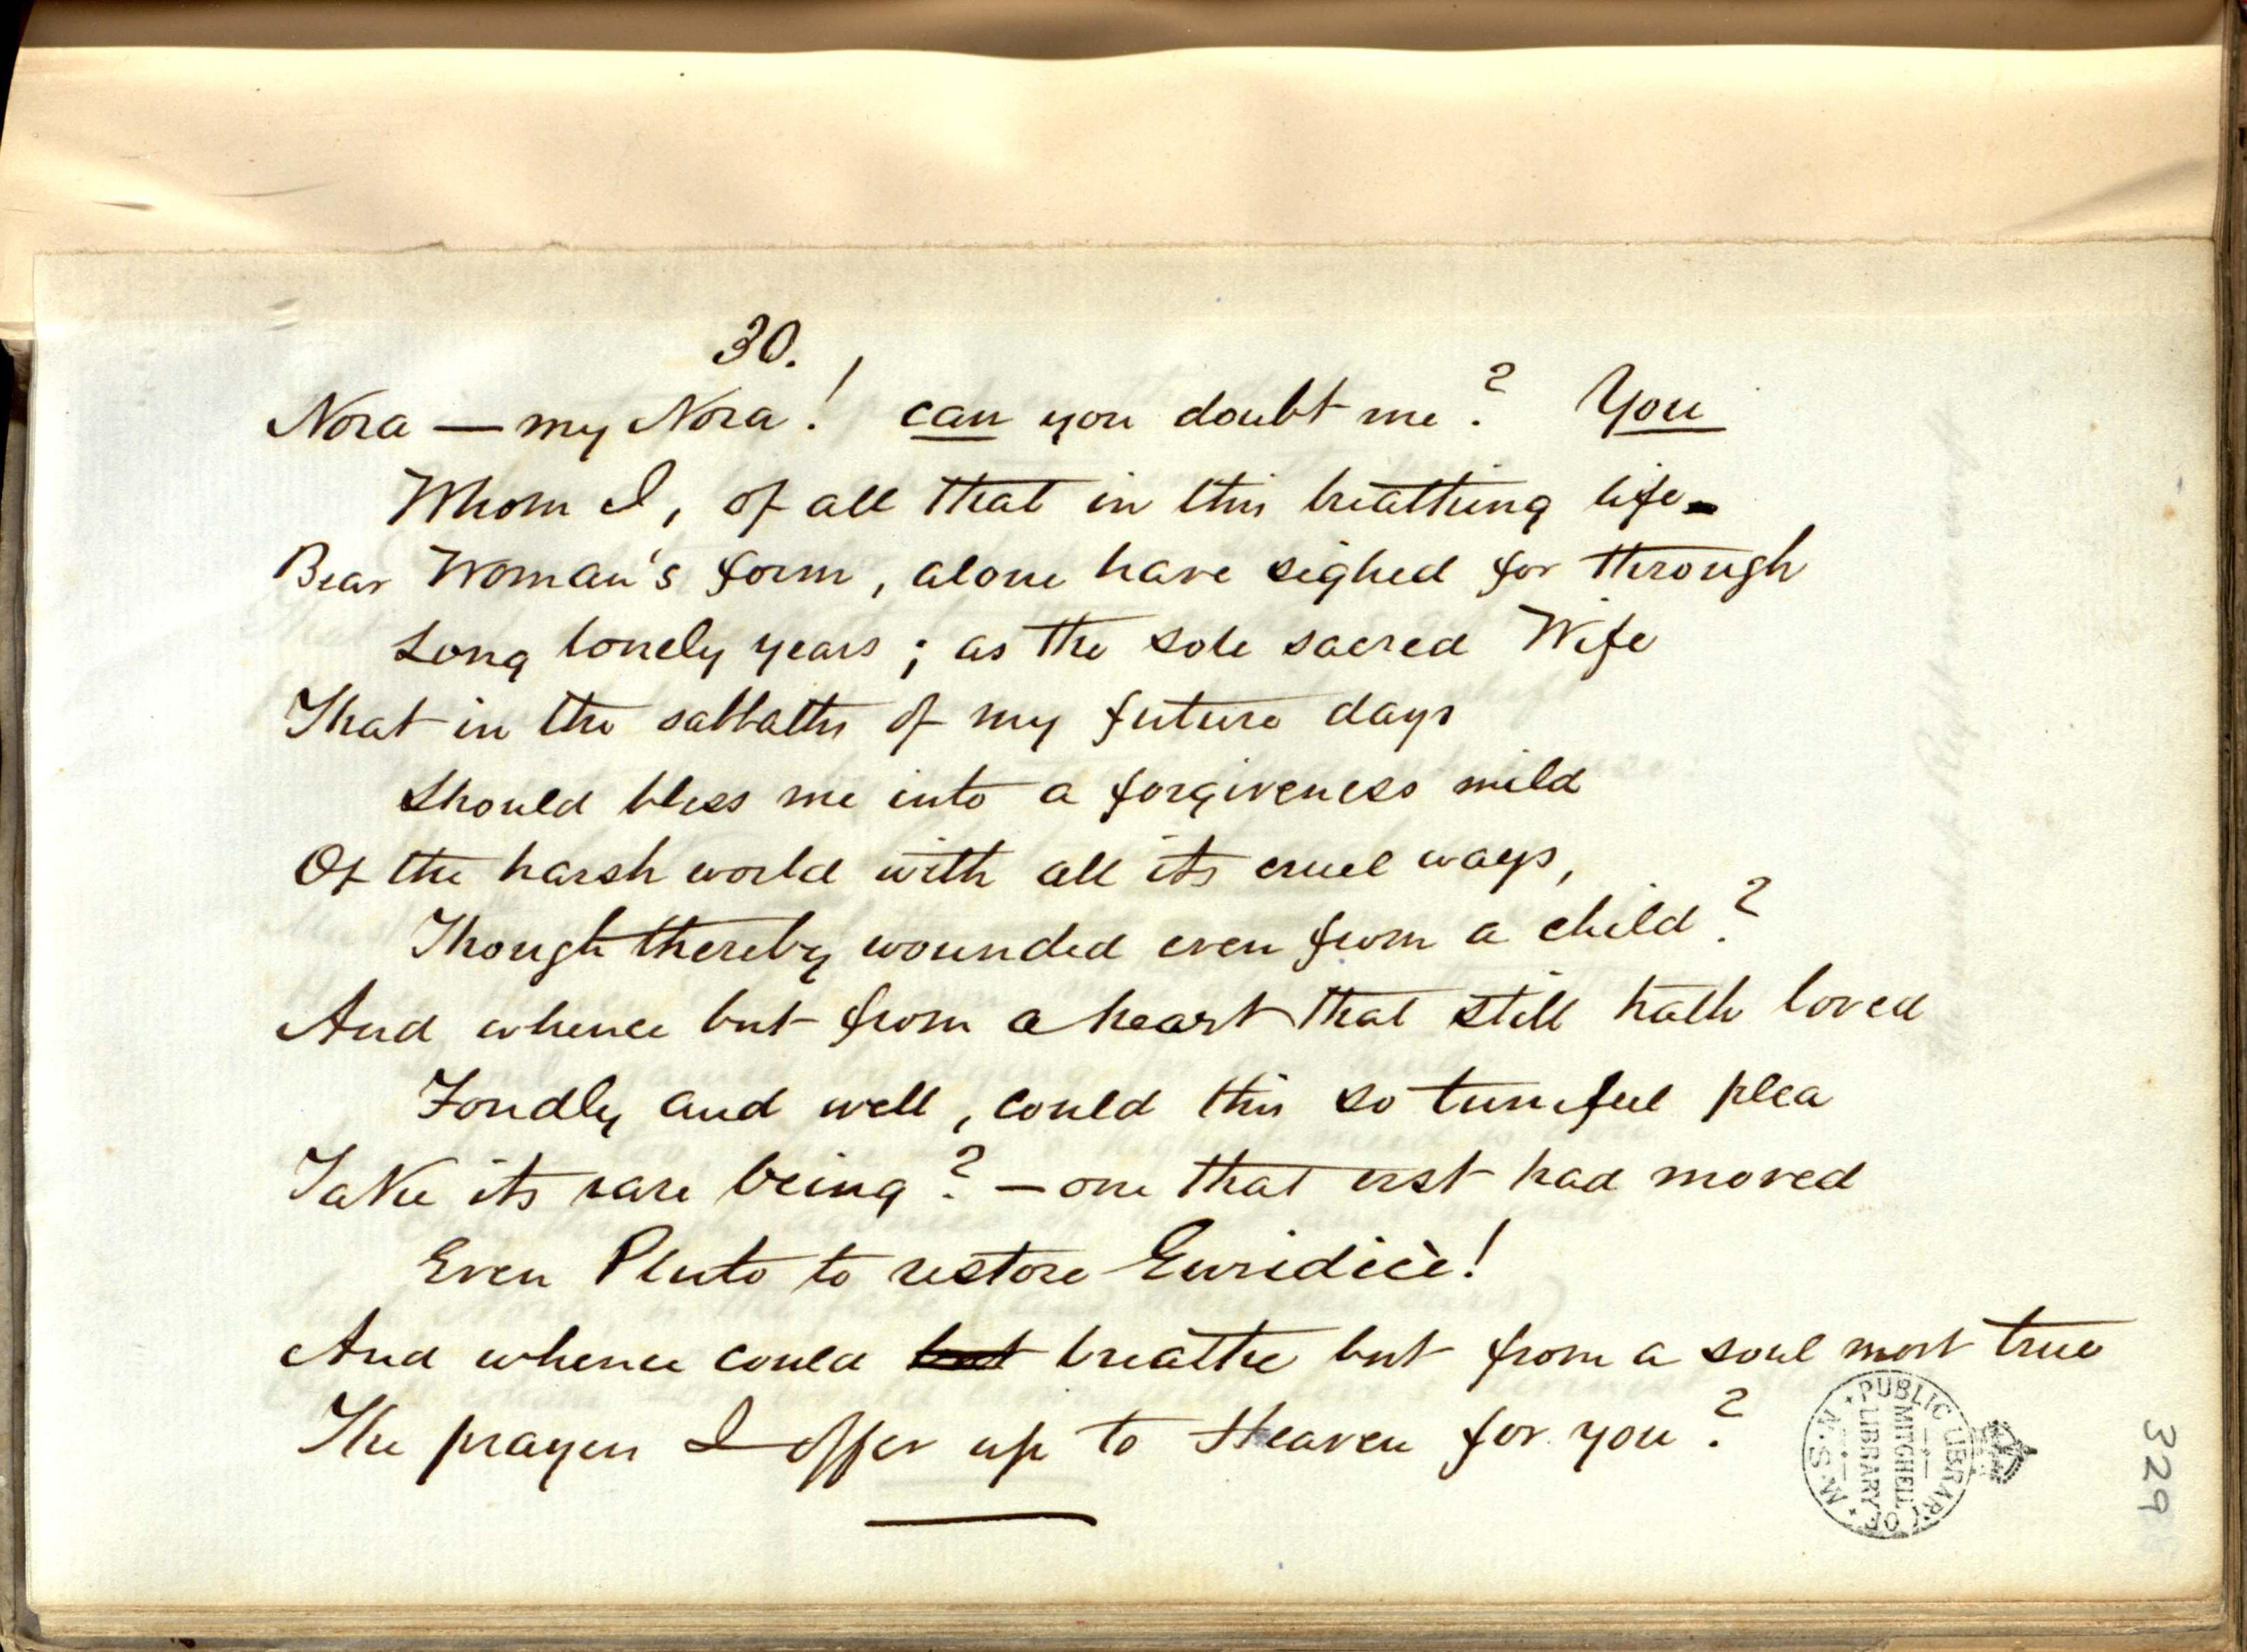 30.
Nora — my Nora! can you doubt me? You
Whom I, of all that in this breathing life
Bear Woman's form, alone have sighed for through
Long lonely years; as the sole sacred Wife
That in the sabbaths of my future days
Should bless me into a forgiveness mild
Of the harsh world with all its cruel ways,
Though thereby wounded even from a child?
And whence but from a heart that still hath loved
Fondly and well, could this so tuneful plea
Take its rare being? — one that erst had moved
Even Pluto to restore Euridicè!
And whence could but breathe but from a soul most true
The prayers I offer up to Heaven for you?
PUBLIC LIBRARY OF N.S.W.
MITCHELL
LIBRARY
329